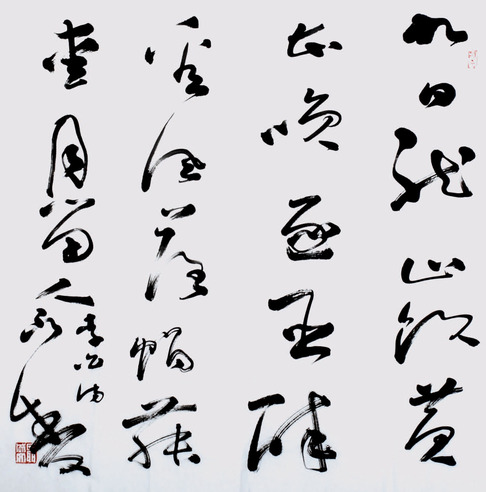 九日龍山飲黃
花咲逐臣醉
看風落帽舞
愛月留人
李白詩